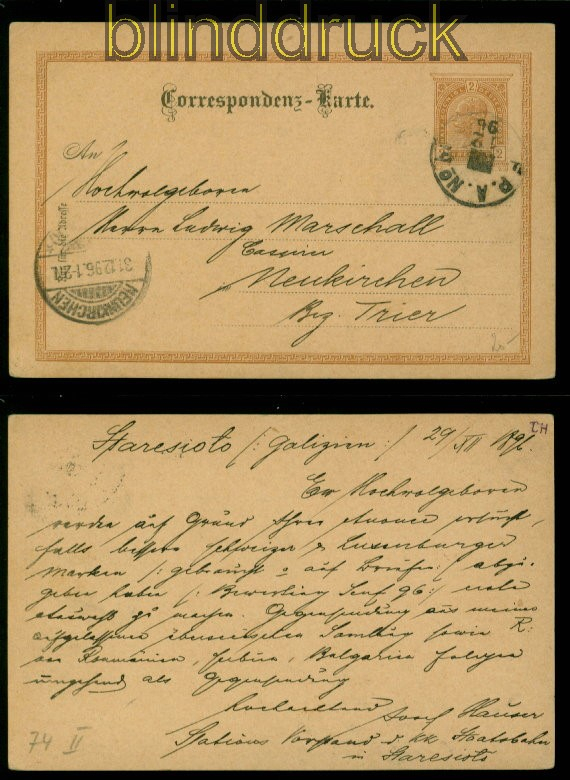 blinddruck
Correspondenz-Karte.
An
Hochwolgeboren
Herrn Ludwig Marschall
Cassier
Neukirchen
Bez. Trier
2
96
P. A. No
31.12.96.1-2N.
NEUNKIRCHEN
Staresioło /: Galizien :/ 29/XII 1896.
IH
Euer Hochwolgeboren
werden auf Grund Ihrer Anonce ersucht,
falls bessere Schweizer & Luxenburger
Marken /: gebraucht & auf Briefen :/ abzu-
geben haben /: Bewertung Senf 96 :/
zu machen. Gegensendung aus meiner
sowie R:
von Romänien, Serbien, Bulgarien folgen
umgehend als Gegensendung
Hochachtend
Josef Hauser
Stations Vorstand d. kk Staatsbahn
in Staresioło
74 II